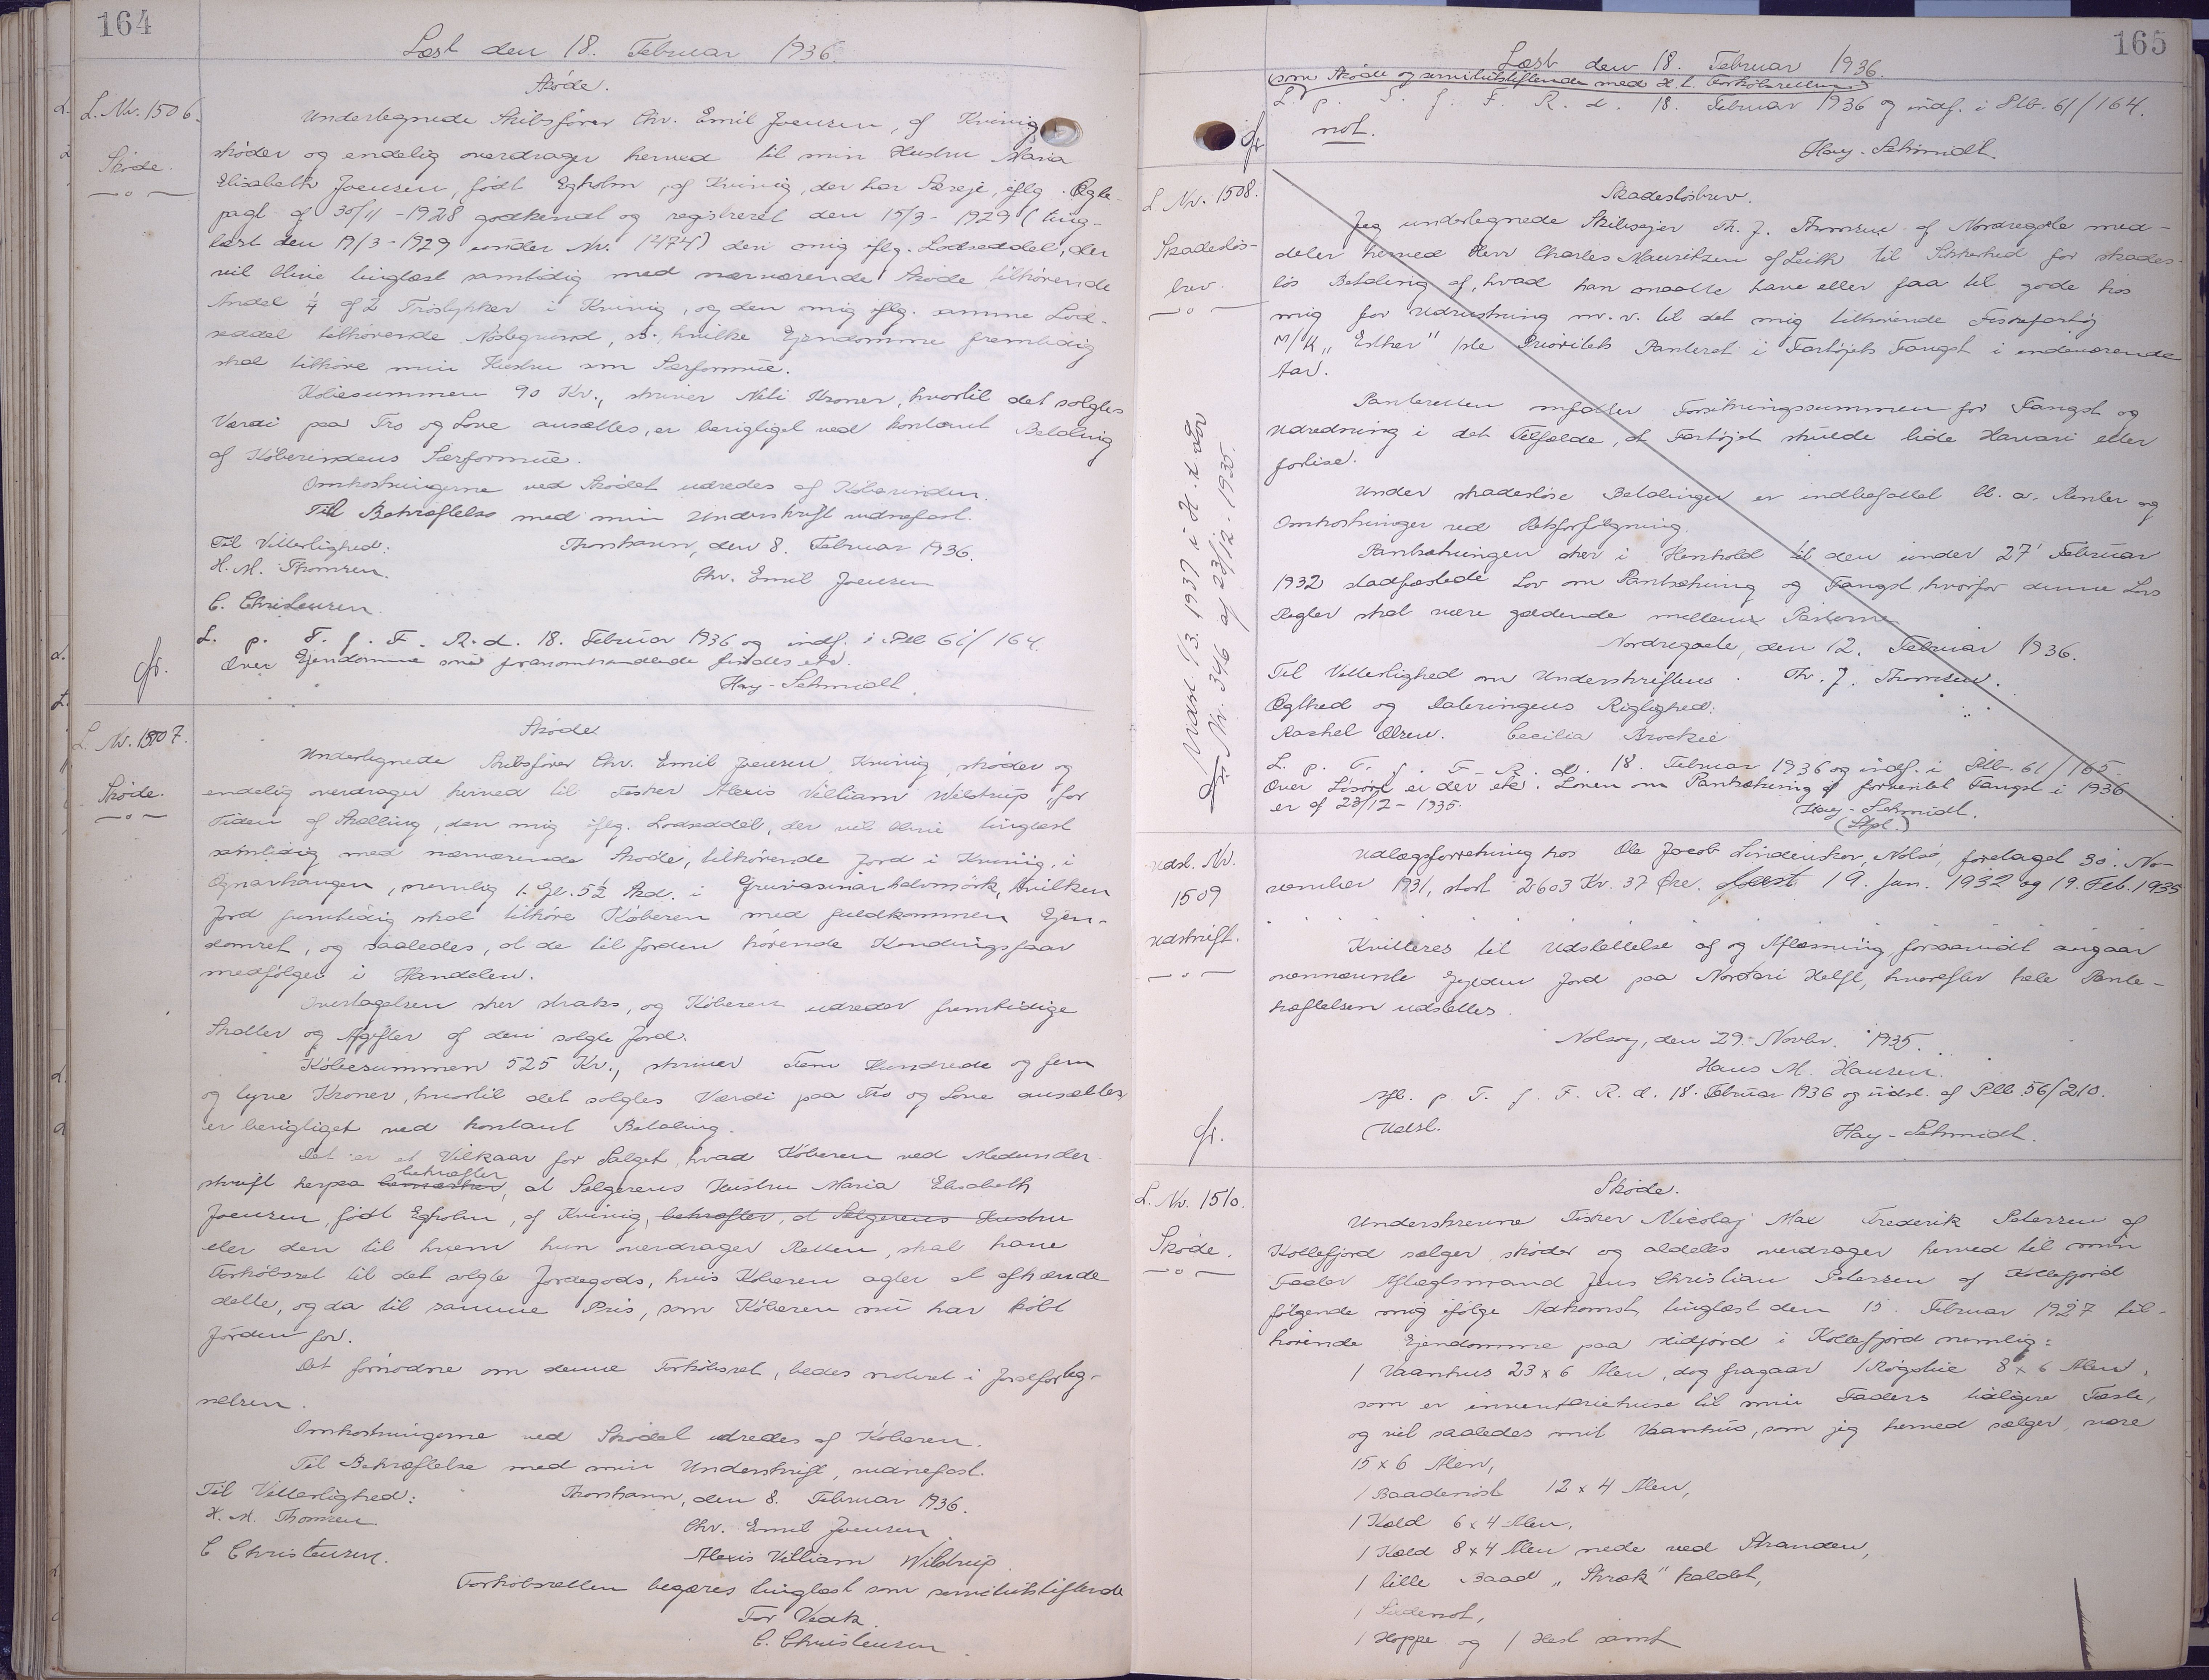 164
Læst den 18. Februar 1936.
L. Nr. 1506.
Skøde.
Skøde.
Undertegnede Skibsfører Chr. Emil Joensen, af Kvivig
skøder og endelig overdrager herved til min Hustru Maria
Elisabeth Joensen, født Egholm, af Kvivig, der har Særeje iflg. Ægte-
pagt af 30/11 - 1928 godkendt og registreret den 15/3 - 1929 (ting-
læst den 19/3 - 1929 under Nr. 1474) den mig iflg. Lodseddel, der
vil blive tinglæst samtidig med nærværende Skøde tilhørende
Andel 1/4 af 2 Trøstykker i Kvivig, og den mig iflg. samme Lod-
seddel tilhørende Nöstegrund, hvilke Ejendomme fremtidig
skal tilhøre min Hustru som Særformue.
Købesummen 90 Kr., skriver Niti Kroner, hvortil det solgtes
Værdi paa Tro og Love ansættes, er berigtiget ved kontant Betaling
af Køberindens Særformue.
Omkostningerne ved Skødet udredes af Køberinden.
Til Bekræftelse med min Underskrift vidnefast.
Til Vitterlighed: Thorshavn, den 8. Februar 1936.
H. M. Thomsen. Chr. Emil Joensen
C. Christensen.
L. p. T. f. F. R. d. 18. Februar 1936 og indf. i Plb 61/164.
Over Ejendomme som foranomhandlende findes ete.
Hay-Schmidt.
L. Nr. 1507.
Skøde.
Skøde
Undertegnede Skibsfører Chr. Emil Joensen, Kvivig, skøder og
endelig overdrager herved til Fisker Alexis Villiam Wilstrup, for
Tiden af Skælling, den mig iflg. Lodseddel, der vil blive tinglæst
samtidig med nærværende Skøde, tilhørende Jord i Kvivig, i
Ognarhaugen, nemlig 1. Gl. 5 1/2 Skd. i Gruvasinar halvmörk, hvilken
Jord fremtidig skal tilhöre Køberen med fuldkommen Ejen-
domsret, og saaledes, at de til Jorden hörende Kendingsfaar
medfölger i Handelen.
Overtagelsen sker straks, og Køberen udreder fremtidige
Skatter og Afgifter af den solgte Jord.
Købesummen 525 Kr., skriver Fem Hundrede og fem
og tyve Kroner, hvortil det solgtes Værdi paa Tro og Love ansættes
er berigtiget ved kontant Betaling.
Det er et Vilkaar for Salget, hvad Køberen ved Medunder-
skrift herpaa bekræfter, at Sælgerens Hustru Maria Elisabeth
Joensen, født Egholm, af Kvivig, bekræfter, at Sælgerens Hustru
eler den til hvem hun overdrager Retten, skal have
Forkøbsret til det solgte Jordegods, hvis Køberen agter at afhænde
dette, og da til samme Pris, som Køberen nu har købt
Jorden for.
Det fornödne om denne Forkøbsret, bedes noteret i Jordforteg-
nelsen.
Omkostningerne ved Skødet udredes af Køberen.
Til Bekræftelse med min Underskrift, vidnefast.
Til Vitterlighed: Thorshavn, den 8. Februar 1936.
H. M. Thomsen Chr. Emil Joensen
C Christensen. Alexis Villiam Wilstrup.
Forkøbsretten begæres tinglæst som servitutstiftende
For Vedk.
C. Christensen
165
Læst den 18. Februar 1936.
(som Skøde og servitutstiftende med H. t. Forkøbsretten)
L. p. T. f. F. R. d. 18. Februar 1936 og indf. i Plb. 61/164.
not.
Hay-Schmidt.
L Nr. 1508.
Skadeslös-
brev.
Skadeslösbrev.
Jeg undertegnede Skibsejer Th. J. Thomsen af Nordregøte med-
deler herved Herr Charles Mauritzen af Leith til Sikkerhed for skades-
lös Betaling af, hvad han maatte have eller faa til gode hos
mig for Udrustning m. v. til det mig tilhörende Fiskefartöj
M/K "Esther" 1ste Prioritets Panteret i Fartöjets Fangst i indeværende
Aar.
Panteretten omfatter Forsikringssummen for Fangst og
Udredning i det Tilfælde, at Fartöjet skulde lide Havari eller
forlise.
Under skadeslöse Betalinger er indbefattet bl. a. Renter og
Omkostninger ved Retsforfölgning.
Pantsætningen sker i Henhold til den under 27' Februar
1932 stadfæstede Lov om Pantsætning af Fangst, hvorfor denne Lovs
Regler skal være gældende mellem Parterne
Nordregøte, den 12. Februar 1936.
Til Vitterlighed om Underskriftens Th. J. Thomsen.
Ægthed og Dateringens Rigtighed:
Rachel Olsen. Cecilia Brockie
L. p. T. f. F. R. d. 18. Februar 1936 og indf. i Plb. 61/165.
Over Lösöre ei der ete. Loven om Pantsætning af forventet Fangst i 1936
er af 23/12 - 1935. Hay-Schmidt.
(Stpl.)
Udsl. 1/3 1937 i H. t. Lov
Nr. 346 af 23/12 - 1935.
Udsl. Nr.
1509
Udskrift.
Udlægsforretning hos Ole Jacob Lindenskov, Nolsö, foretaget 30. No-
vember 1931, stort 2603 Kr. 37 Öre. Læst 19. Jan. 1932 og 19. Feb. 1935
Kvitteres til Udslettelse af og Aflæsning forsaavidt angaar
nævnte Jord paa Nordari Helft, hvorefter hele Pante-
hæftelsen udslettes.
Nolsoy, den 29. Novbr. 1935.
Hans M. Hansen.
Afl. p. T. f. F. R. d. 18. Februar 1936 og udsl. af Plb 56/210.
Udsl.
Hay-Schmidt.
L. Nr. 1510.
Skøde.
Skøde.
Underskrevne Fisker Nicolaj Max Frederik Petersen af
Kollefjord sælger, skøder og aldeles overdrager herved til min
Fader Aftægtsmand Jens Christian Petersen af Kollefjord
fölgende mig ifölge Adkomst, tinglæst den 15. Februar 1927 til-
hörende Ejendomme paa Sidjord i Kollefjord nemlig:
1 Vaanhus 23 x 6 Alen, dog fragaar 1 Rögstue 8 x 6 Alen,
som er inventariehuse til min Faders tidligere Fæste,
og vil saaledes mit Vaanhus, som jeg herved sælger, være
15 x 6 Alen,
1 Baadenöst 12 x 4 Alen,
1 Kald 6 x 4 Alen,
1 Kald 8 x 4 Alen nede ved Stranden,
1 lille Baad "Skræk" kaldet,
1 Sildenot,
1 Hoppe og 1 Hest samt